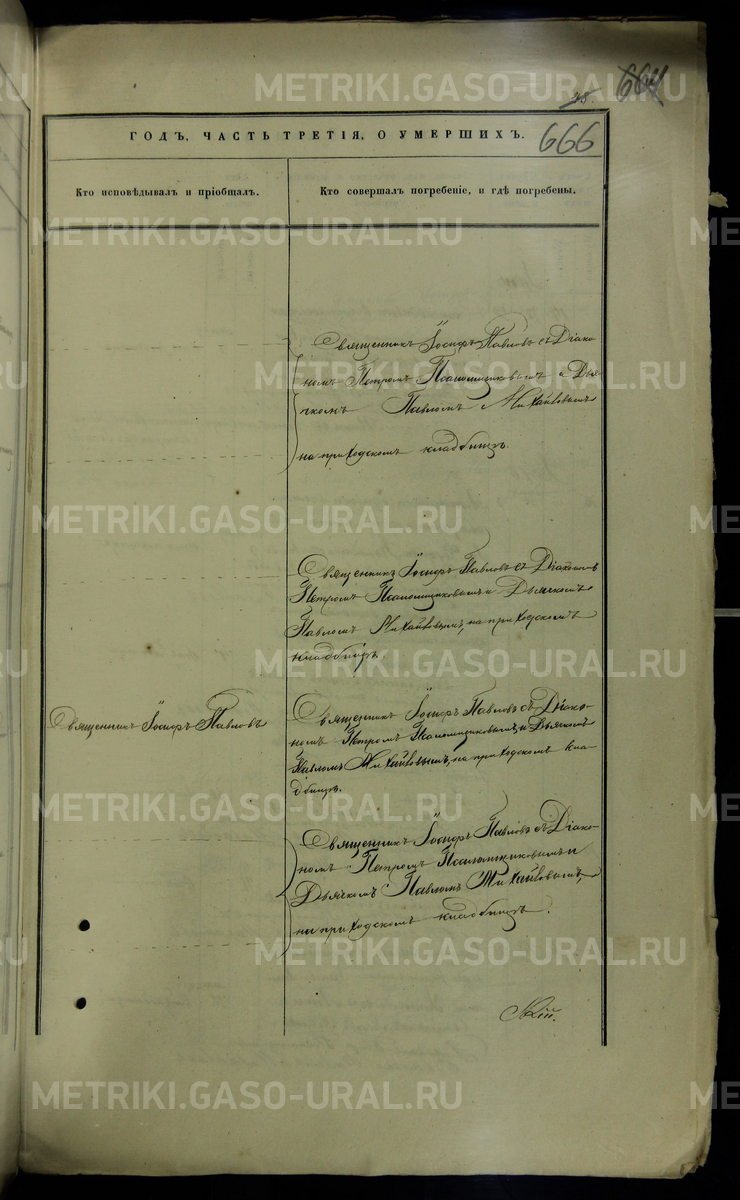 664
28.
ГОДЪ, ЧАСТЬ ТРЕТІЯ, О УМЕРШИХЪ.
666
Кто исповѣдывалъ и пріобщалъ.
Кто совершалъ погребеніе, и гдѣ погребены.
Священникъ Іосифъ Павловъ съ Діако-
номъ Петромъ Псаломщиковымъ и Дья-
чкомъ Павломъ Михайловымъ
на приходскомъ кладбищѣ.
Священникъ Іосифъ Павловъ съ Діакономъ
Петромъ Псаломщиковымъ и Дьячкомъ
Павломъ Михайловымъ, на приходскомъ
кладбищѣ.
Священникъ Іосифъ Павловъ
Священникъ Іосифъ Павловъ съ Діако-
номъ Петромъ Псаломщиковымъ и Дьячкомъ
Павломъ Михайловымъ, на приходскомъ кла-
дбищѣ.
Священникъ Іосифъ Павловъ съ Діако-
номъ Петромъ Псаломщиковымъ и
Дьячкомъ Павломъ Михайловымъ,
на приходскомъ кладбищѣ.
METRIKI.GASO-URAL.RU